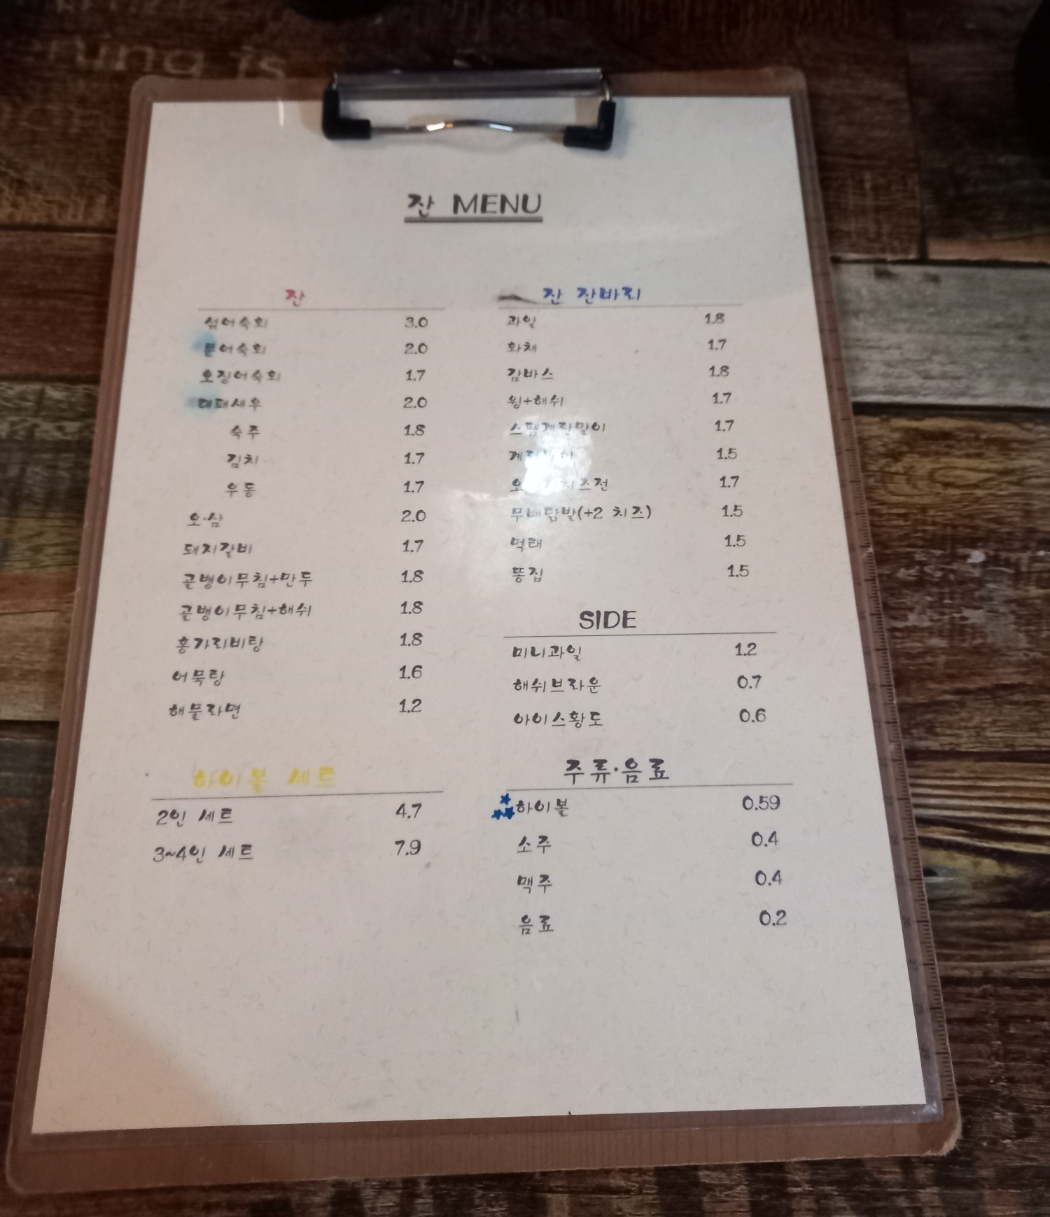 잔 MENU
잔
섞어숙회 3.0
문어숙회 2.0
오징어숙회 1.7
대패새우 2.0
숙주 1.8
김치 1.7
우동 1.7
오·삼 2.0
돼지갈비 1.7
골뱅이무침+만두 1.8
골뱅이무침+해쉬 1.8
홍가리비탕 1.8
어묵탕 1.6
해물라면 1.2
하이볼 세트
2인 세트 4.7
3~4인 세트 7.9
잔 잔바리
과일 1.8
화채 1.7
감바스 1.8
윙+해쉬 1.7
스팸계란말이 1.7
1.5
1.7
무뼈닭발(+2 치즈) 1.5
먹태 1.5
똥집 1.5
SIDE
미니과일 1.2
해쉬브라운 0.7
아이스황도 0.6
주류·음료
하이볼 0.59
소주 0.4
맥주 0.4
음료 0.2